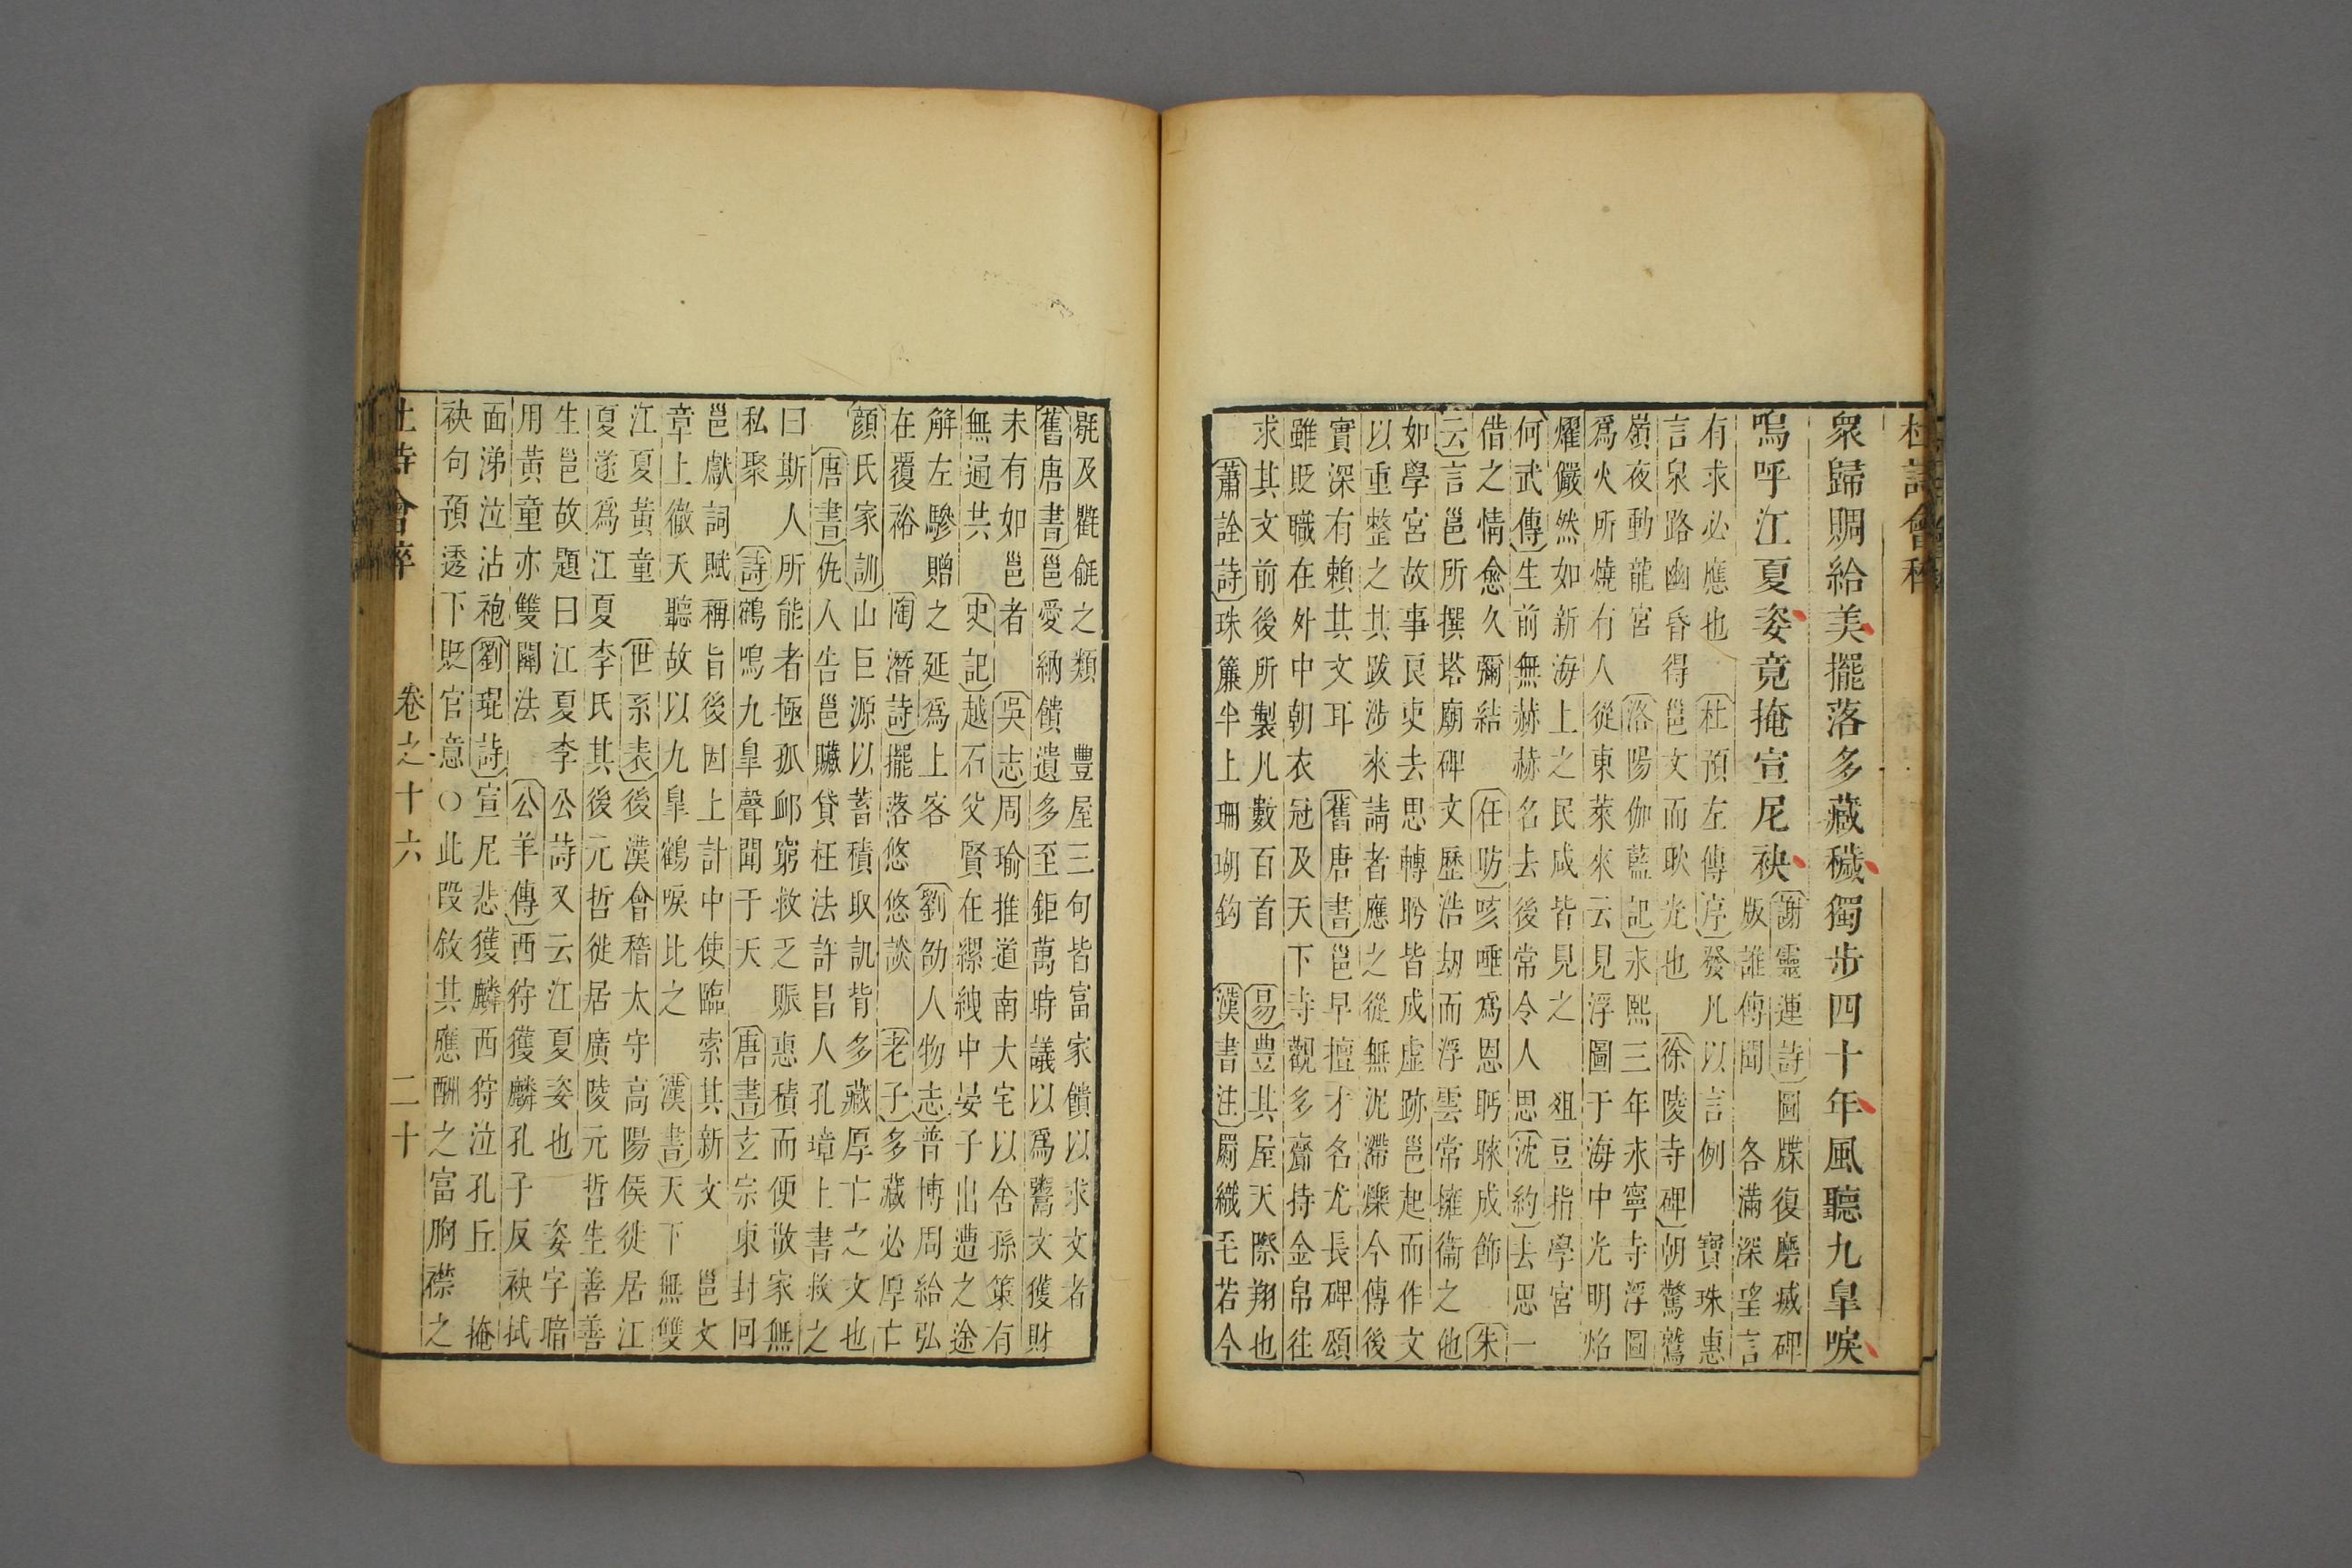 杜詩會稡
衆歸賙給美擺落多藏穢獨步四十年風聽九臯唳
嗚呼江夏姿竟掩宣尼袂
謝靈運詩圖牒復磨滅碑
版誰傳聞 各滿深望言
有求必應也 杜預左傳序發凡以言例 寶珠惠
言泉路幽昏得邕文而耿光也 徐陵寺碑朝驚鷲
嶺夜動龍宮 洛陽伽藍記永熙三年永寧寺浮圖
爲火所燒有人從東萊來云見浮圖于海中光明焰
燿儼然如新海上之民咸皆見之 俎豆指學宮
何武傳生前無赫赫名去後常令人思沈約去思一
借之情愈久彌結 任昉咳唾爲恩眄睞成飾 朱
云言邕所撰塔廟碑文歷浩劫而浮雲常擁衞之他
如學宮故事良吏去思轉盻皆成虛跡邕起而作文
以重整之其跋涉來請者應之從無泥滯爍今傳後
實深有賴其文耳 舊唐書邕早擅才名尤長碑頌
雖貶職在外中朝衣冠及天下寺觀多齎持金帛往
求其文前後所製凡數百首 易豊其屋天際翔也
蕭詮詩珠簾半上珊瑚鈎 漢書注罽織毛若今
毾及氍毹之類 豊屋三句皆富家饋以求文者
舊唐書邕愛納饋遺多至鉅萬時議以爲鬻文獲財
未有如邕者 吳志周瑜推道南大宅以舍孫策有
無通共 史記越石父賢在縲絏中晏子出遭之途
解左驂贈之延爲上客 劉劭人物志普博周給弘
在覆裕 陶潛詩擺落悠悠談 老子多藏必厚亡
顔氏家訓山巨源以蓄積取譏背多藏厚亡之文也
唐書仇人告邕贓貸枉法許昌人孔璋上書救之
曰斯人所能者極孤邮窮救乏賑惠積而便散家無
私聚 詩鶴鳴九臯聲聞于天 唐書玄宗東封回
邕獻詞賦稱旨後因上計中使臨索其新文 邕文
章上徹天聽故以九臯鶴唳比之 漢書天下無雙
江夏黃童 世系表後漢會稽太守高陽侯徙居江
夏遂爲江夏李氏其後元哲徙居廣陵元哲生善善
生邕故題曰江夏李公詩又云江夏姿也 姿字暗
用黃童亦雙關法 公羊傳西狩獲麟孔子反袂拭
面涕泣沾袍 劉琨詩宣尼悲獲麟西狩泣孔丘 掩
袂句預透下貶官意○此段敘其應酬之富胸襟之
杜詩會稡 卷之十六 二十